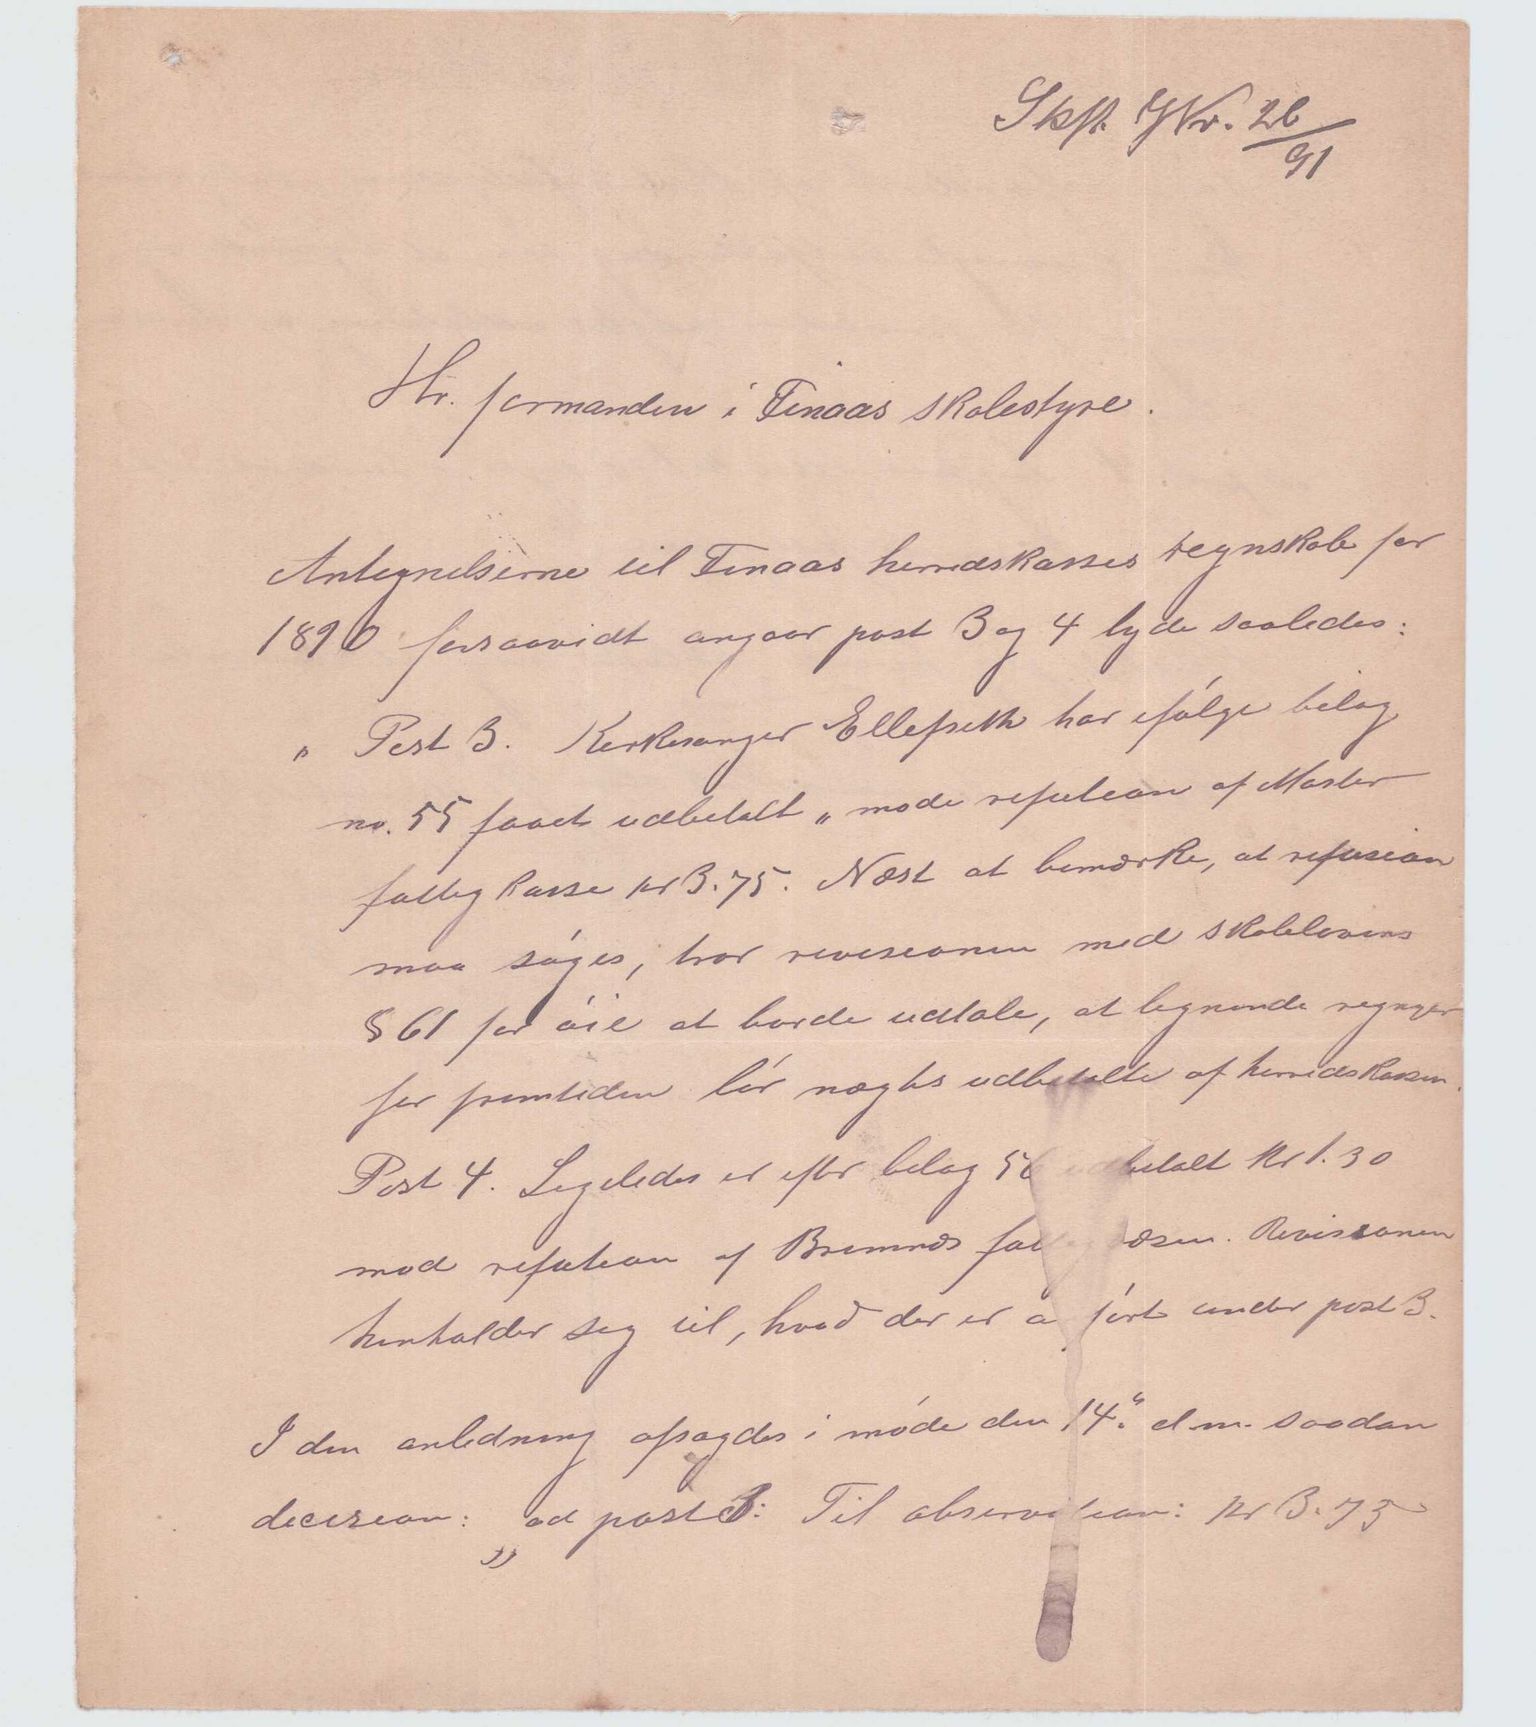 Skst. JNr. 26/91
Hr. formanden i Finaas skolestyre.
Antegnelserne til Finaas herredskasses regnskab for
1890 forsaavidt angaar post 3 og 4 lyde saaledes:
„ Post 3. Kirkesanger Ellefseth har ifølge bilag
no. 55 faaet udbetalt „ mode refusion af Moster
fattigkasse kr 3.75. Næst at bemærke, at refusion
maa søges, tror revisionen med skolelovens
§ 61 for øie at burde udtale, at lignende regnger
for fremtiden bør nægtes udbetalte af herredskassen.
Post 4. Ligeledes er efter bilag 56 udbetalt kr 1.30
mod refusion af Bremnæs fattigvæsen. Revisionen
henholder sig til, hvad der er anført under post 3.
I den anledning afsagdes i møde den 14. d.m. saadan
decision: „ad post 3: Til observation: kr 3.75